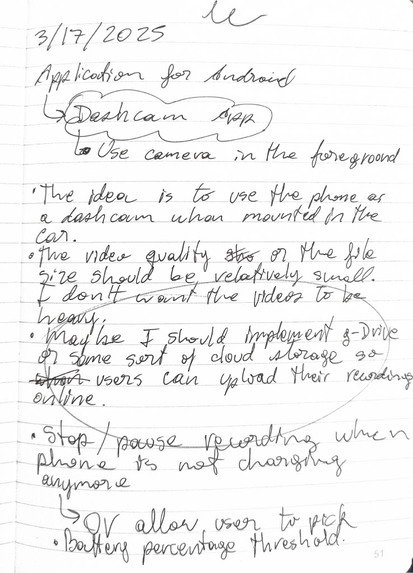 3/17/2025
Application for Android
Dashcam App
Use camera in the foreground
• The idea is to use the phone as
a dashcam when mounted in the
car.
• The video quality or the file
size should be relatively small.
I don't want the videos to be
heavy.
• Maybe I should implement g-Drive
or some sort of cloud storage so
users can upload their recordings
online.
• Stop/pause recording when
phone is not charging
anymore
Or allow user to pick
• Battery percentage threshold.
51